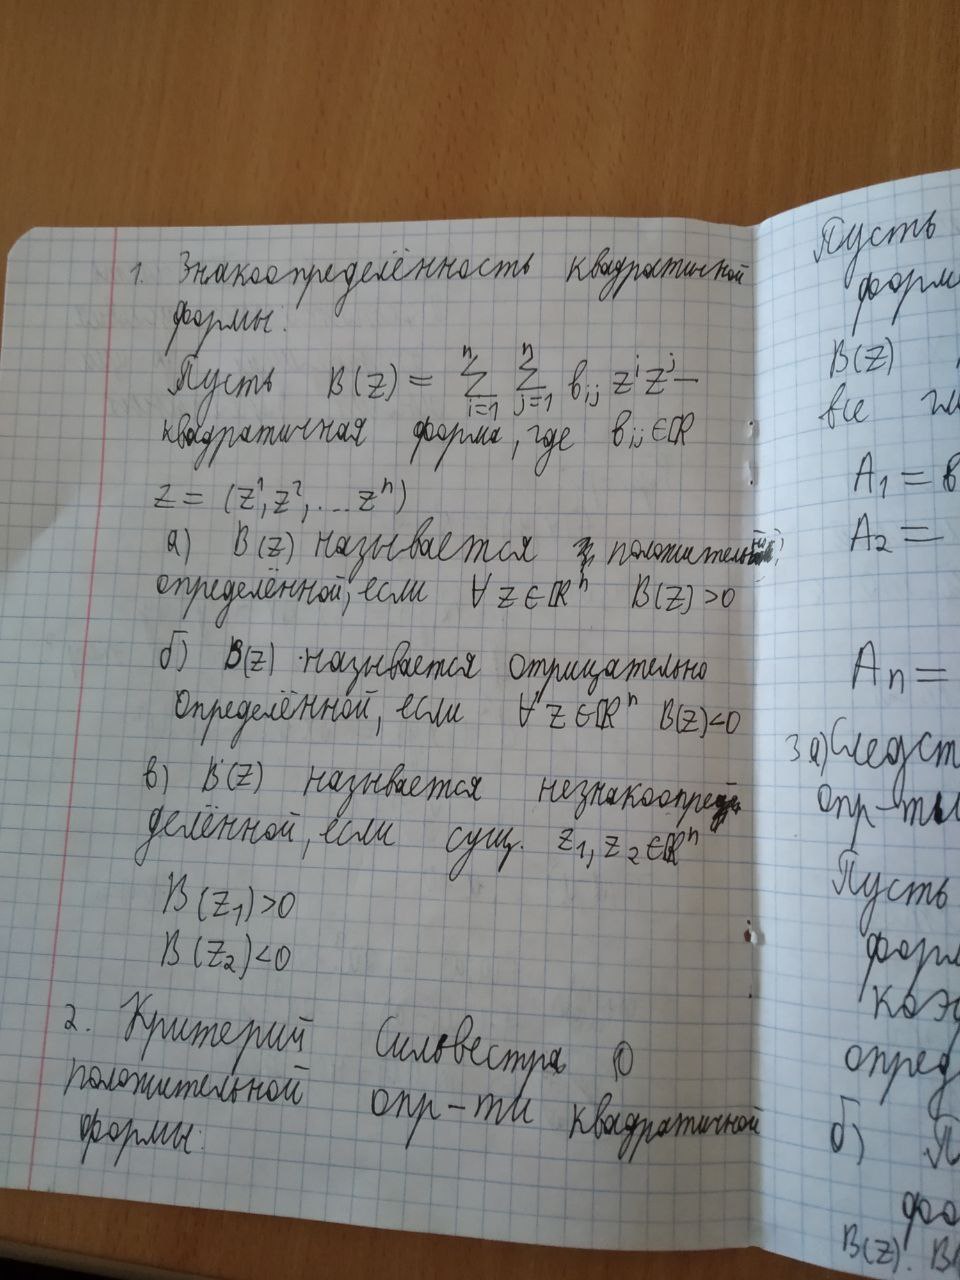 1. Знакоопределённость квадратичной
формы:
Пусть B(z) = n∑i=1 n∑j=1 bij zⁱ zʲ —
квадратичная форма, где bij ∈ ℝ
z = (z¹, z², ... zⁿ)
а) B(z) называется положительно
определённой, если ∀ z ∈ ℝⁿ B(z) > 0
б) B(z) называется отрицательно
определённой, если ∀ z ∈ ℝⁿ B(z) < 0
в) B(z) называется незнакоопре
делённой, если сущ. z₁, z₂ ∈ ℝⁿ
B(z₁) > 0
B(z₂) < 0
2. Критерий Сильвестра о
положительной опр-ти квадратичной
формы:
Пусть
форм
B(z)
все
A₁ = b
A₂ =
Aₙ =
3 а) Следст
опр-ти
Пусть
форм
коэ
опред
б) П
фо
B(z). B(